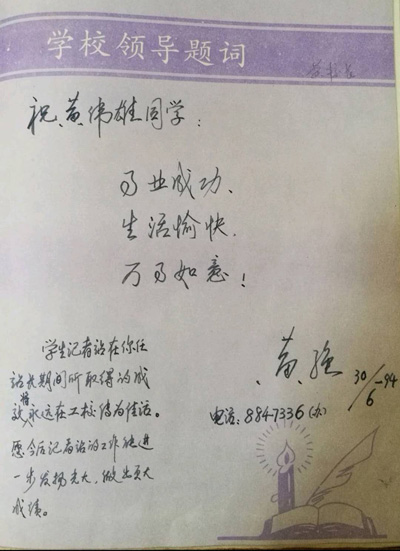 学校领导题词
祝黄伟雄同学：
事业成功、
生活愉快、
万事如意！
学生记者站在你任
站长期间所取得的成
效将永远在工校传为佳话。
愿今后记者站的工作能进
一步发扬光大，做出更大
成绩。
黄强
30/6-94
电话：8847336(办)